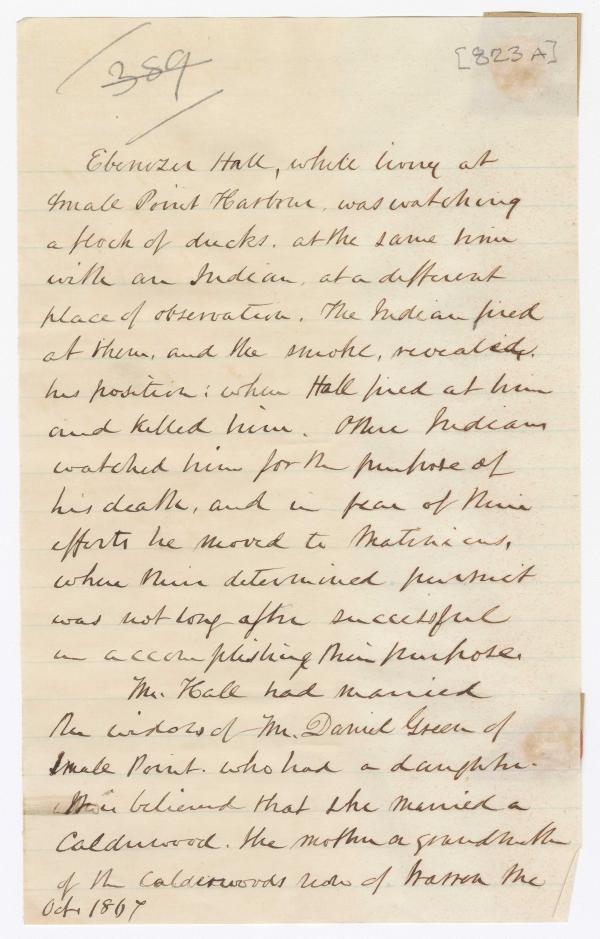 389
[823 A]
Ebenezer Hall, while living at
Small Point Harbour, was watching
a flock of ducks. at the same time
with an Indian, at a different
place of observation. The Indian fired
at them, and the smoke, revealed
his position; when Hall fired at him
and killed him. Other Indians
watched him for the purpose of
his death, and in fear of their
efforts he moved to Matinicus,
where their determined pursuit
was not long after successful
in accomplishing their purpose.
Mr. Hall had married
the widow of Mr. Daniel Green of
Small Point. who had a daughter.
believed that she married a
Calderwood. the mother or grandmother
of the Calderwoods now of Warren Me
Oct. 1867